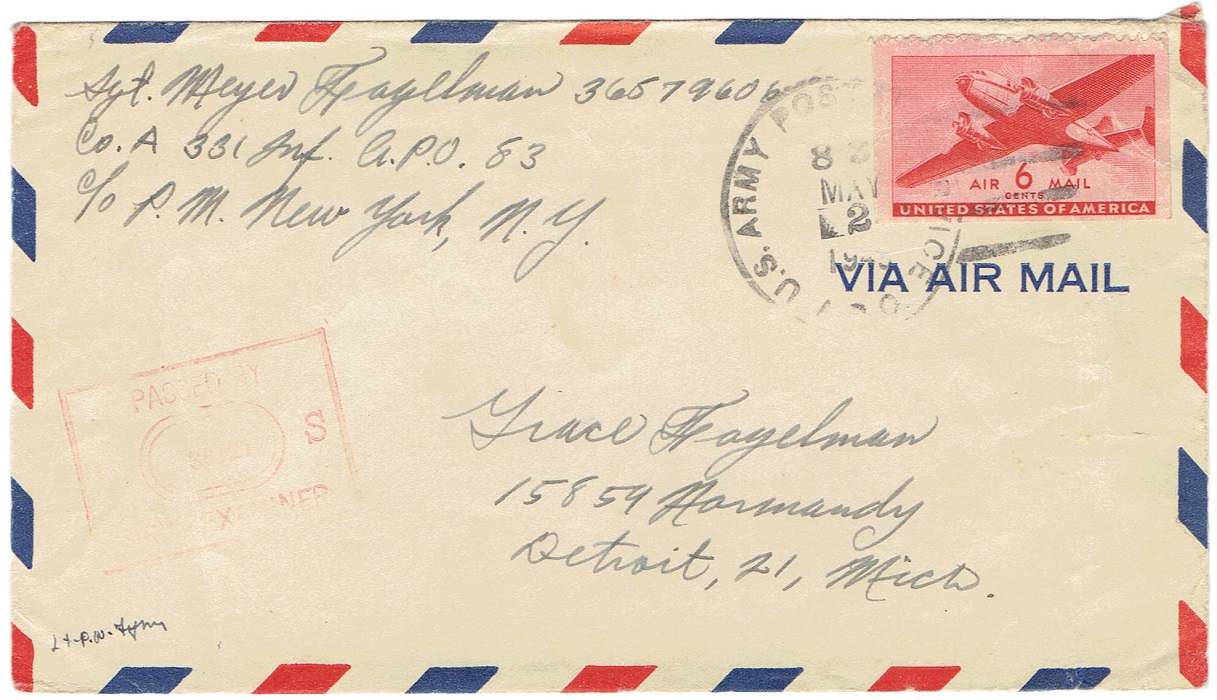 Sgt. Meyer Fogelman 36579606
Co. A 331 Inf. A.P.O. 83
c/o P. M. New York, N. Y.
U.S. ARMY POST
8
MAY
2
AIR 6 MAIL
CENTS
UNITED STATES OF AMERICA
VIA AIR MAIL
PASSED BY
S
Grace Fogelman
15859 Normandy
Detroit, 21, Mich.
Lt. P.W.